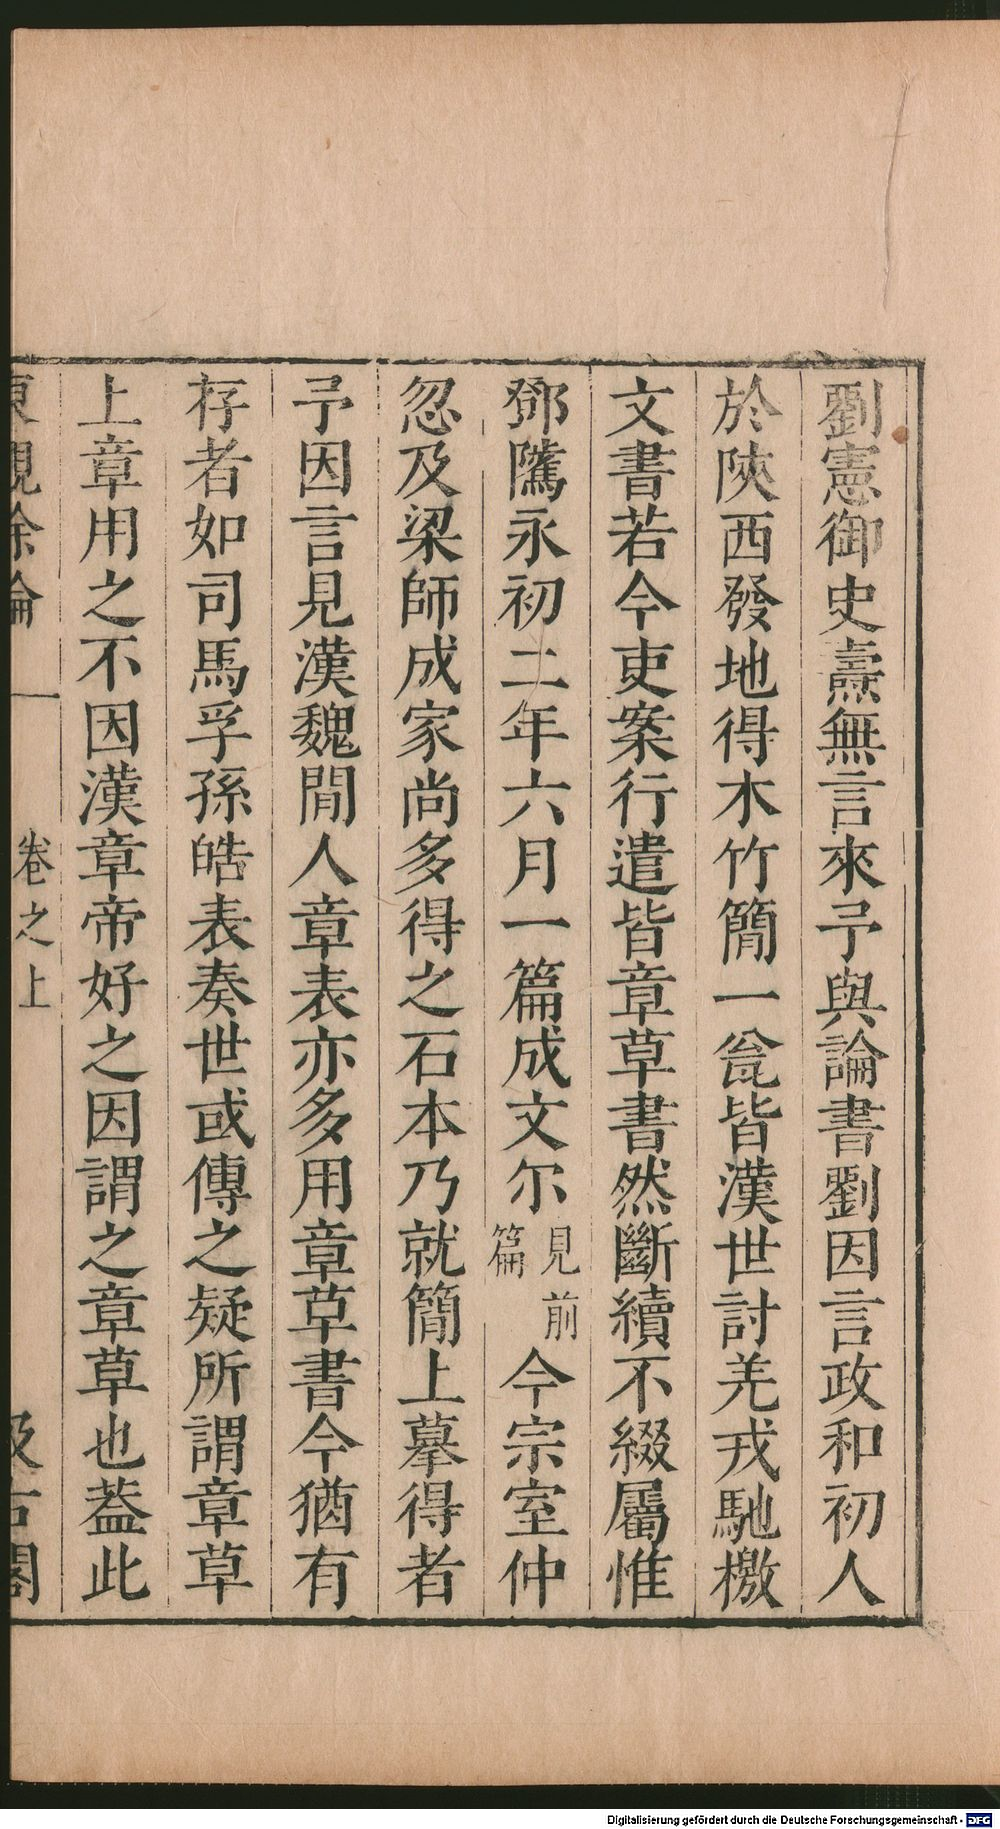 劉憲御史燾無言來予與論書劉因言政和初人
於陜西發地得木竹簡一瓮皆漢世討羌戎馳檄
文書若今吏案行遣皆章草書然斷續不綴屬惟
鄧隲永初二年六月一篇成文尔見前篇今宗室仲
忽及梁師成家尚多得之石本乃就簡上摹得者
予因言見漢魏間人章表亦多用章草書今猶有
存者如司馬孚孫皓表奏世或傳之疑所謂章草
上章用之不因漢章帝好之因謂之章草也葢此
東觀餘論 卷之上 汲古閣
Digitalisierung gefördert durch die Deutsche Forschungsgemeinschaft - DFG